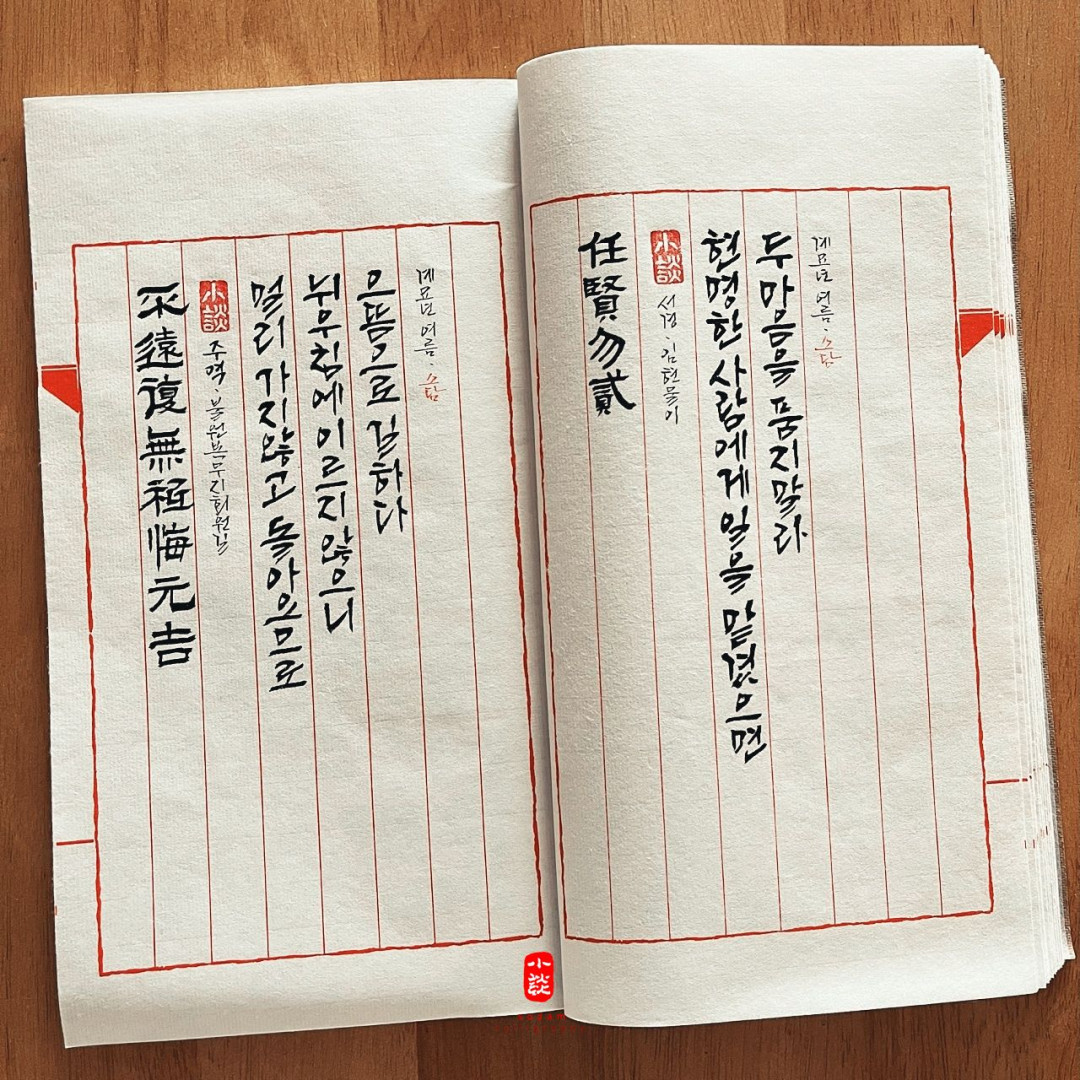 不遠復無祗悔元吉
小談
주역 · 불원복무지회원길
멀리 가지않고 돌아오므로
뉘우침에 이르지않으니
으뜸으로 길하다
계묘년 여름 · 소담
任賢勿貳
小談
서경 · 임현물이
현명한 사람에게 일을 맡겼으면
두 마음을 품지말라
계묘년 여름 · 소담
小談